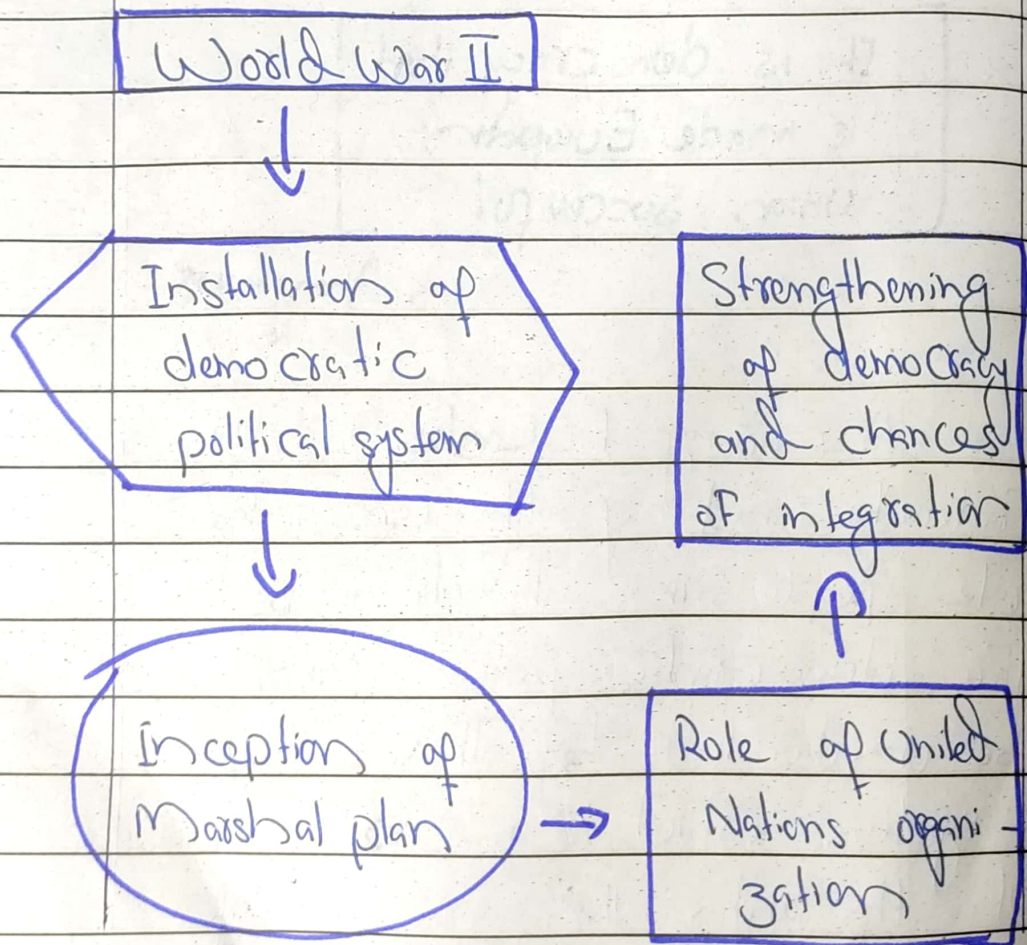 World War II
Installation of
democratic
political system
Inception of
Marshal plan
Role of United
Nations organi-
zation
Strengthening
of democracy
and chances
of integration